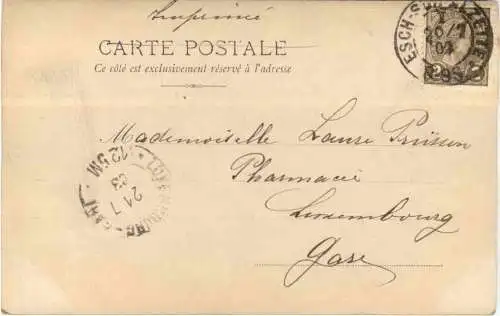 Imprimé
CARTE POSTALE
Ce côté est exclusivement réservé à l'adresse
ESCH-SUR-ALZETTE
03
Mademoiselle Laure Prüssen
Pharmacie
Luxembourg
Gare
LUXEMBOURG-GARE
21 7
03